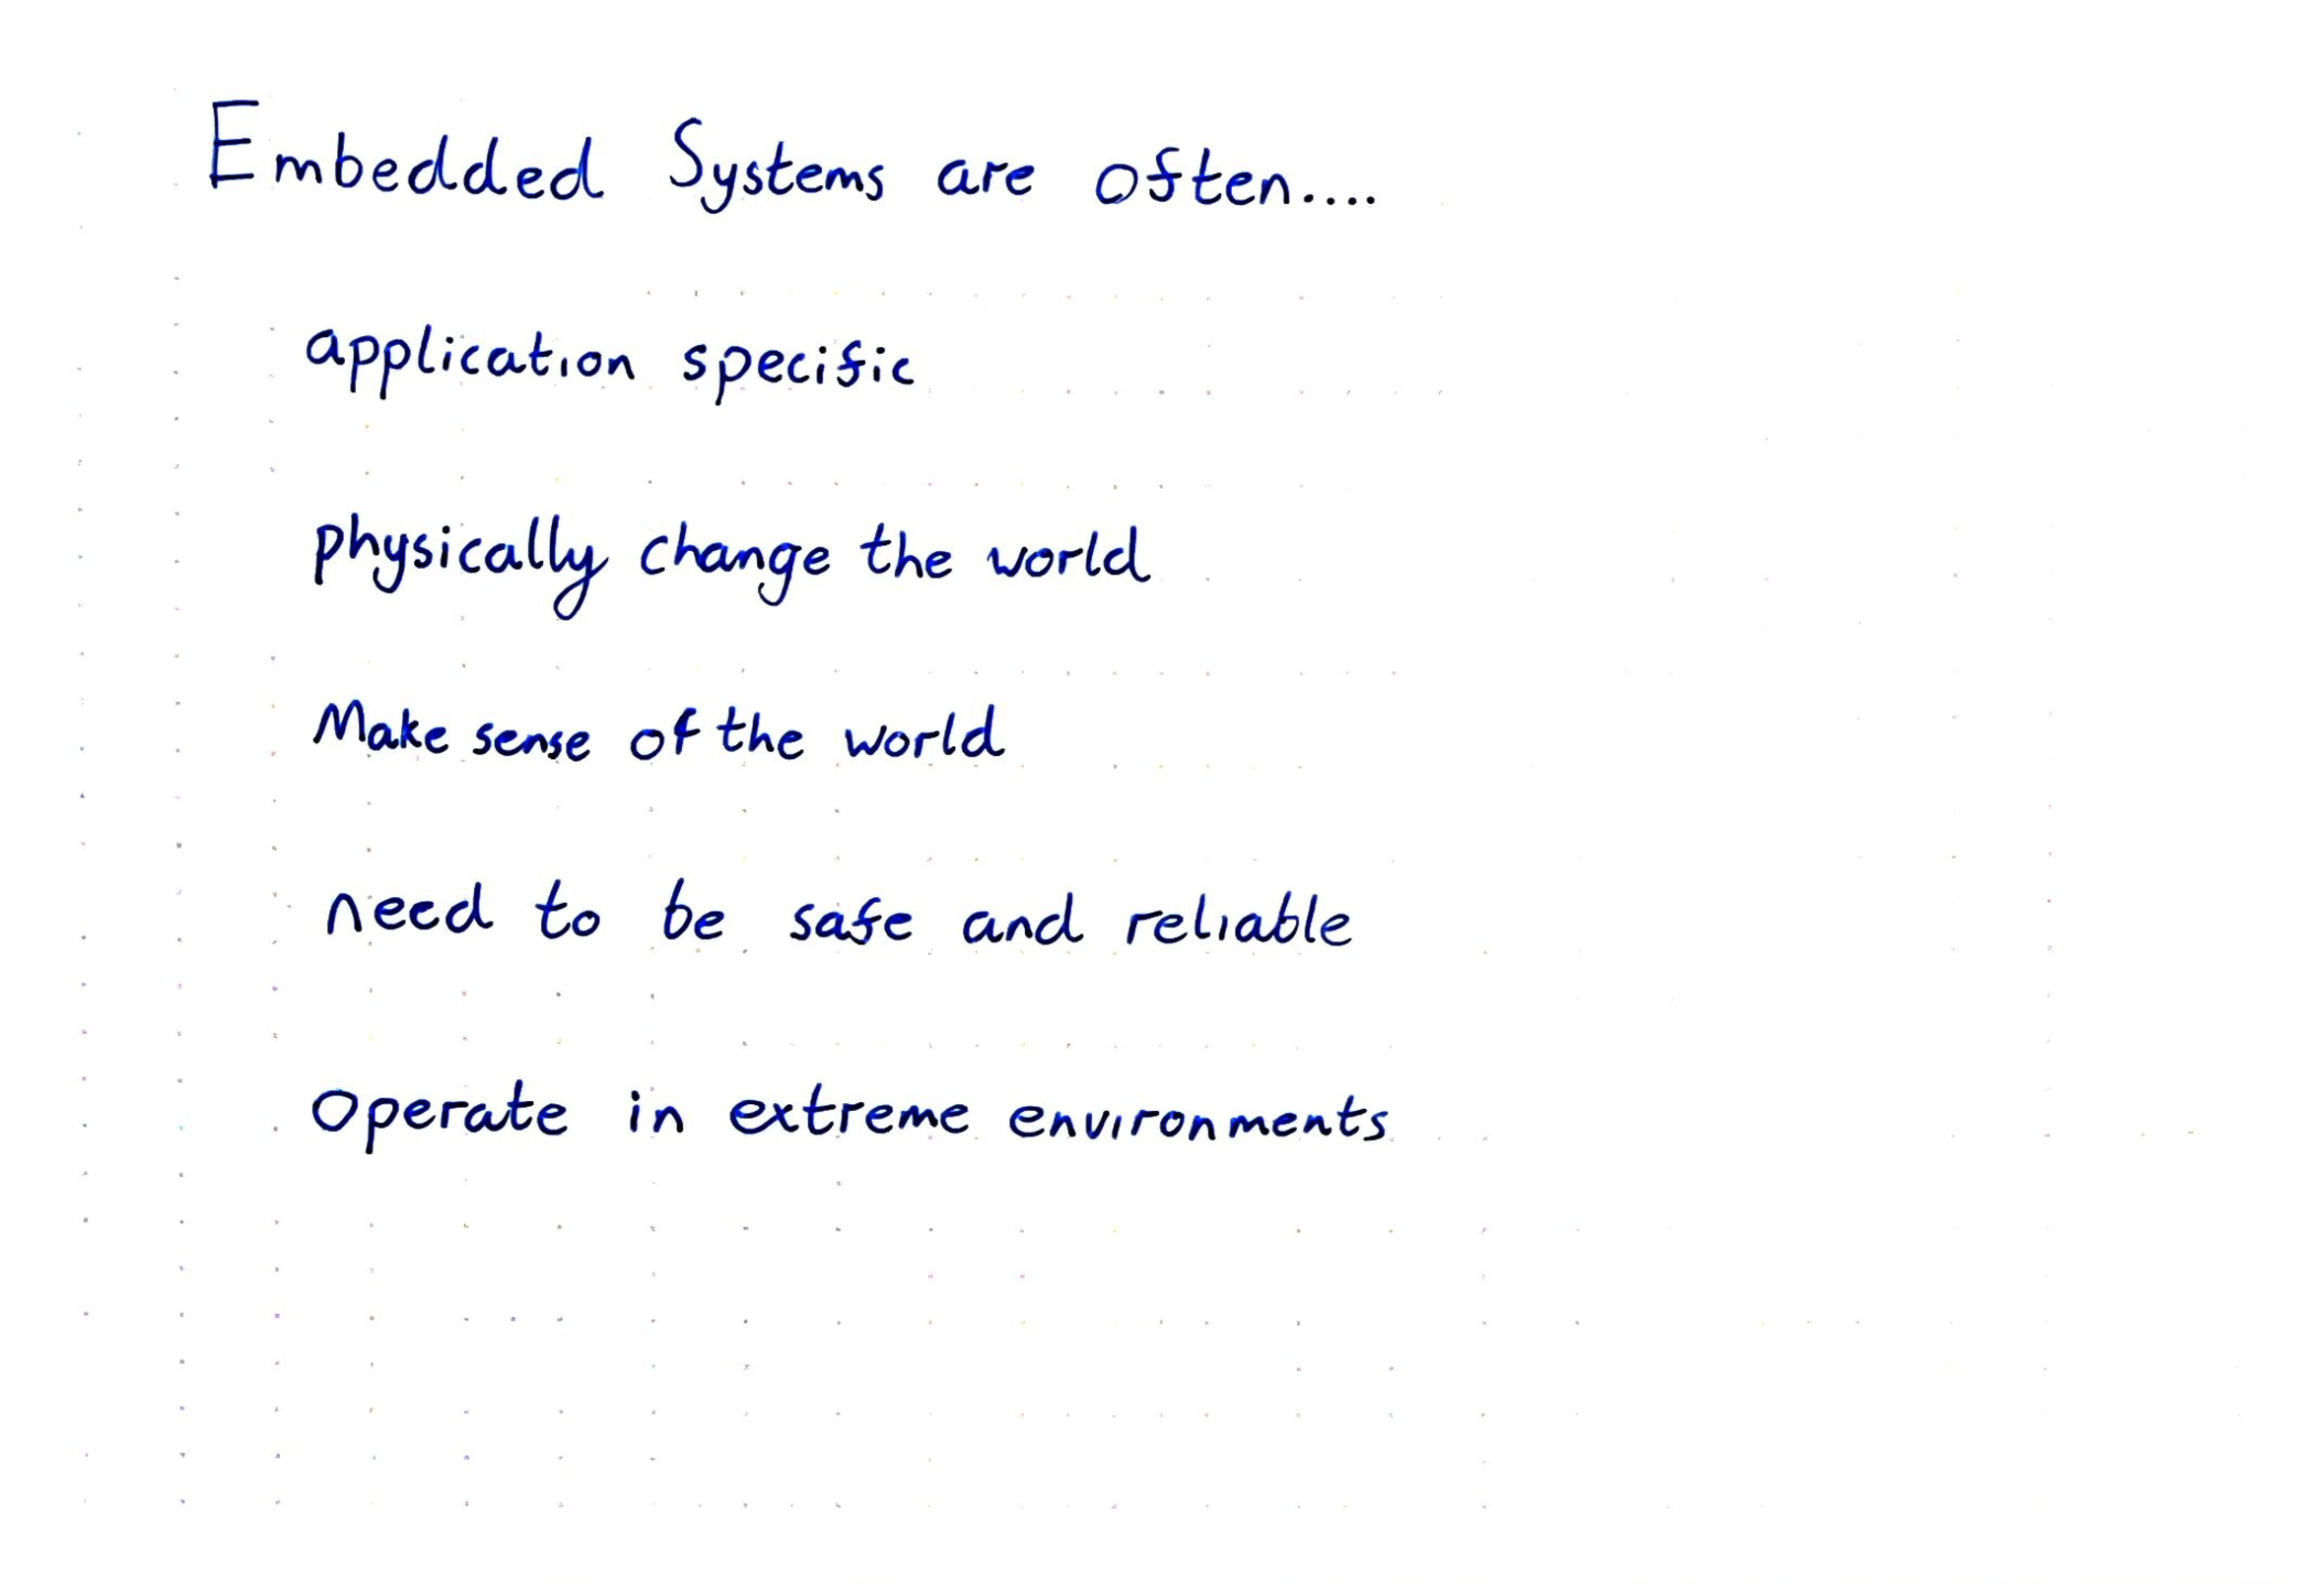 Embedded Systems are often....
application specific
physically change the world
Make sense of the world
need to be safe and reliable
Operate in extreme environments